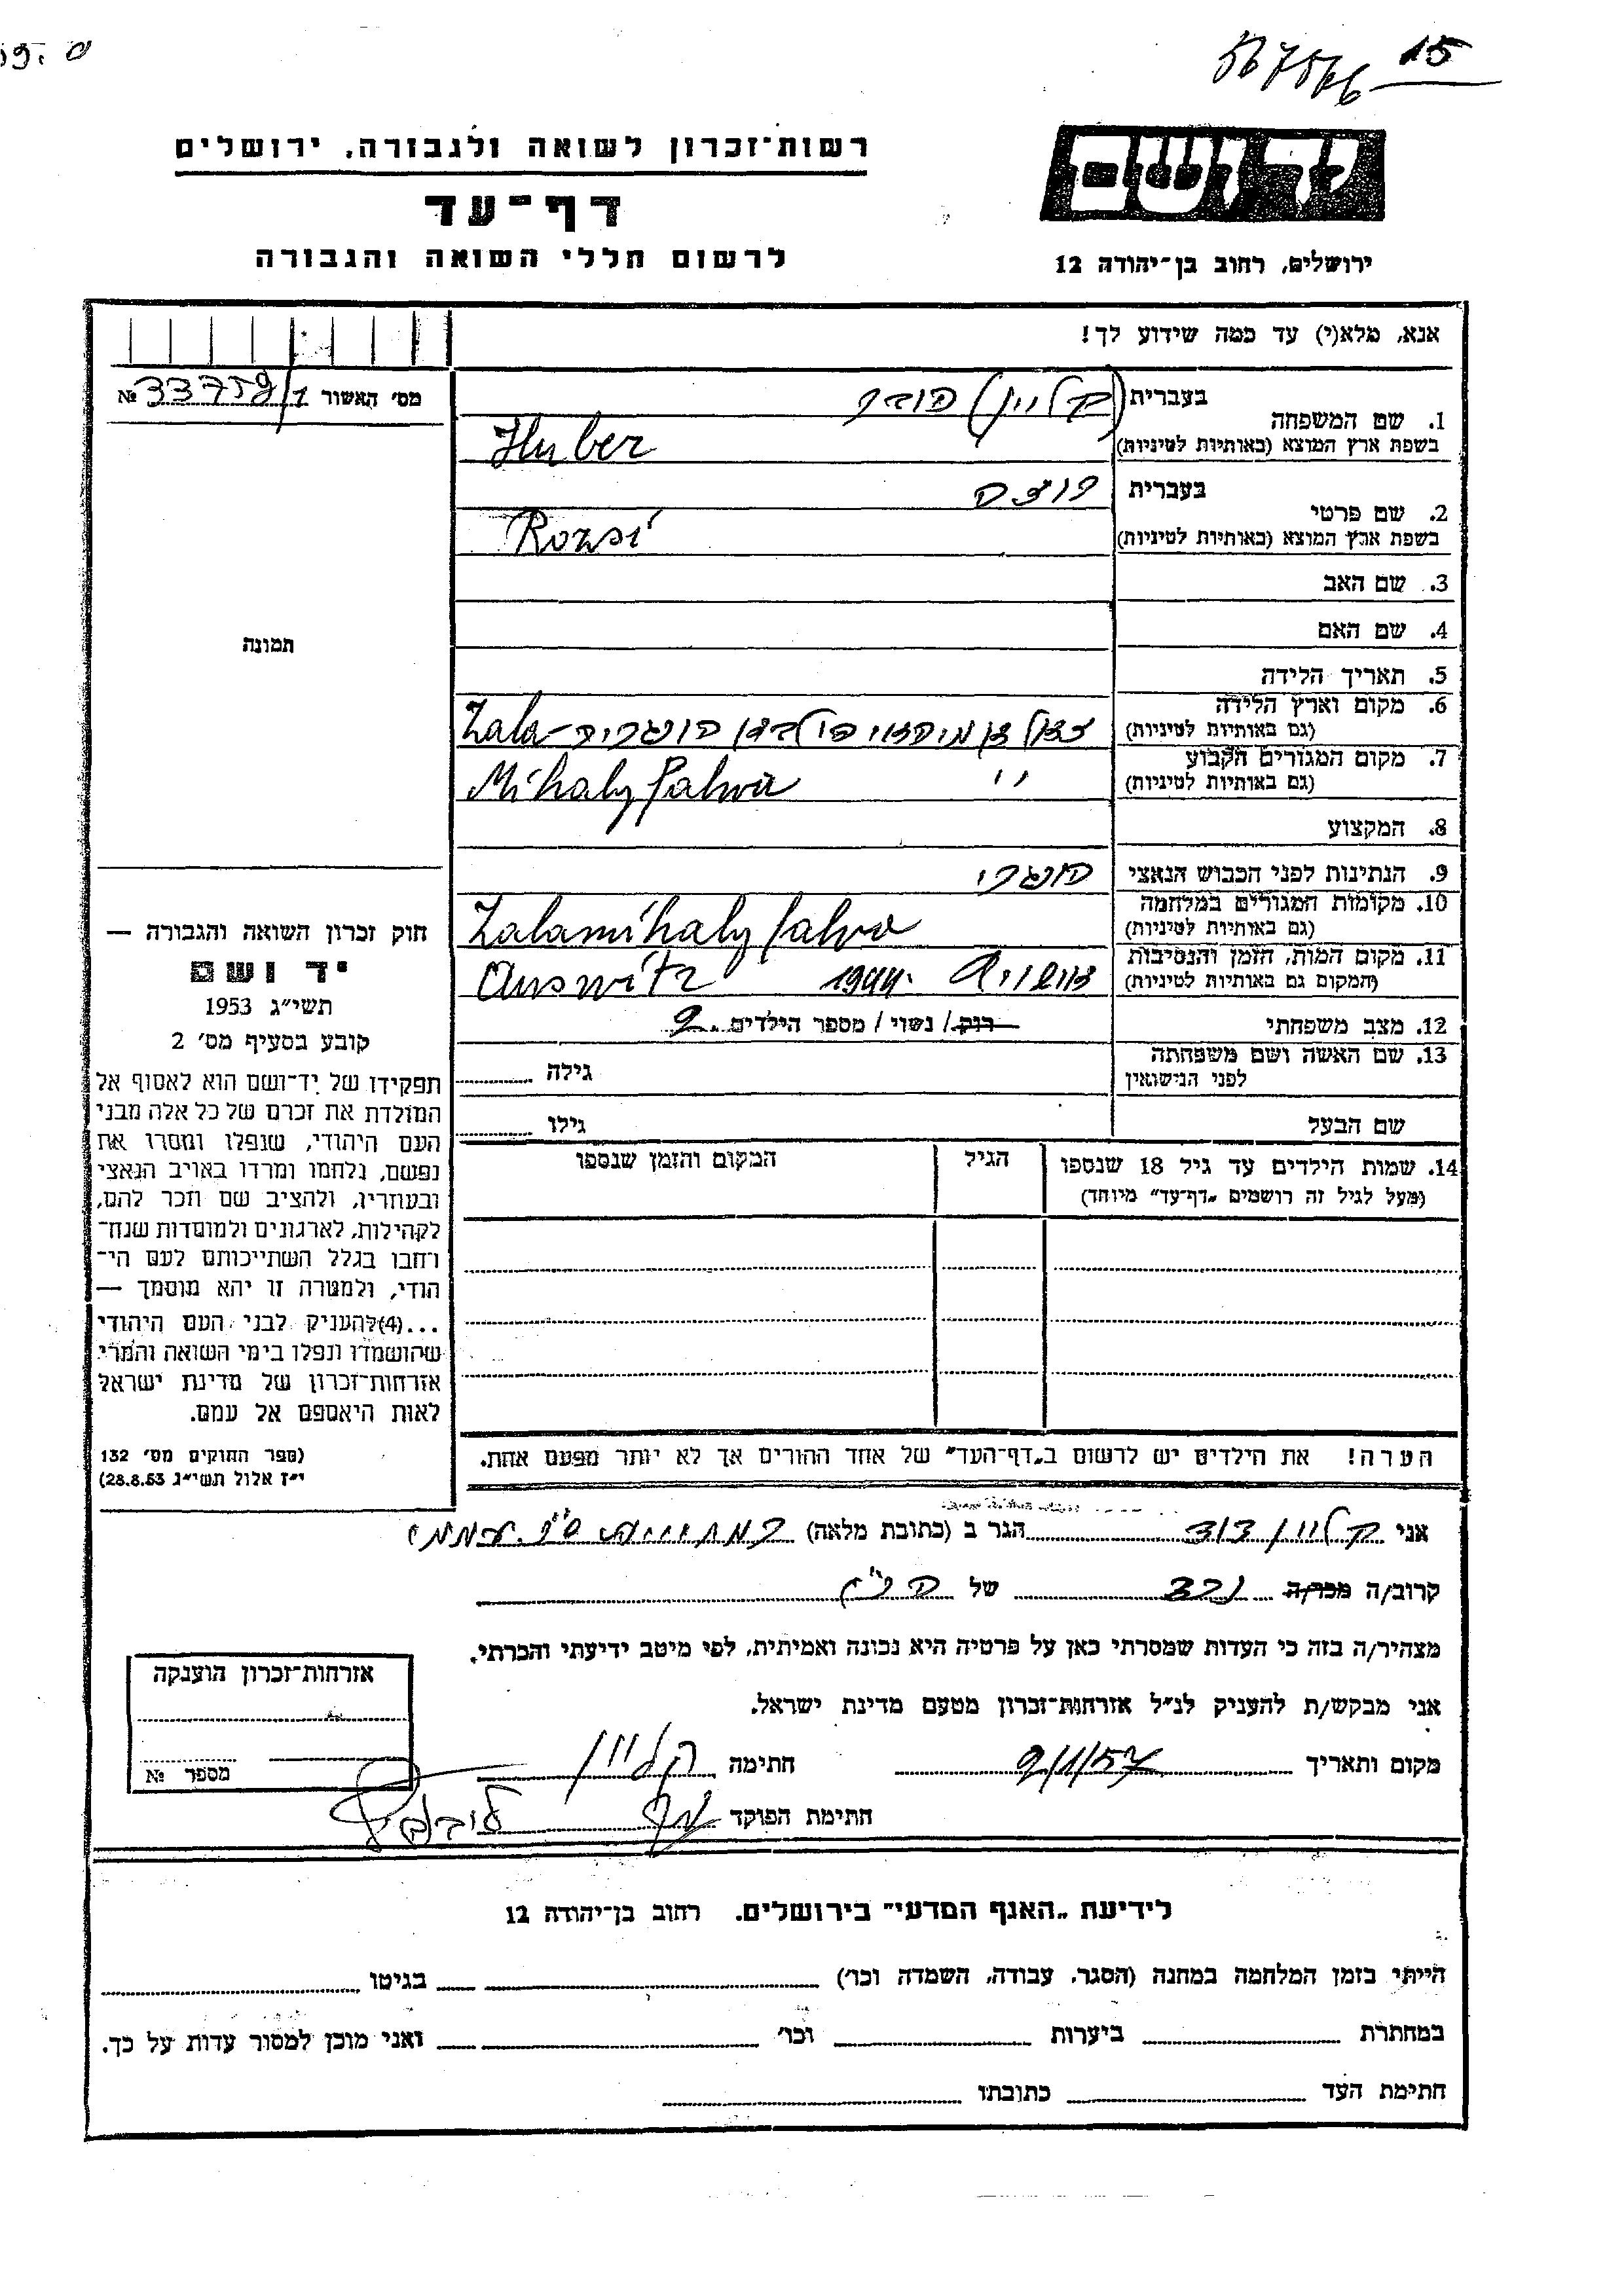 567566 15
רשות־זכרון לשואה ולגבורה, ירושלים
דף־עד
לרשום חללי השואה והגבורה
ידושם
ירושלים, רחוב בן־יהודה 12
אנא, מלא(י) עד כמה שידוע לך!
מס׳ האשור 33759/1 №
תמונה
1. שם המשפחה
בעברית (קליין) הובר
בשפת ארץ המוצא (באותיות לטיניות) Huber
2. שם פרטי
בעברית רוזה
בשפת ארץ המוצא (באותיות לטיניות) Rozsi
3. שם האב
4. שם האם
5. תאריך הלידה
6. מקום וארץ הלידה
(גם באותיות לטיניות) הונגריה - Zala
7. מקום המגורים הקבוע
(גם באותיות לטיניות) ״ Mihalyfalva
8. המקצוע
9. הנתינות לפני הכבוש הנאצי הונגרי
10. מקומות המגורים במלחמה
(גם באותיות לטיניות) Zalamihalyfalva
11. מקום המות, הזמן והנסיבות
(המקום גם באותיות לטיניות) אושוויץ 1944. Auswitz
12. מצב משפחתי רוק / נשוי / מספר הילדים 2
13. שם האשה ושם משפחתה
לפני הנישואין גילה
שם הבעל גילו
14. שמות הילדים עד גיל 18 שנספו הגיל המקום והזמן שנספו
(מעל לגיל זה רושמים „דף־עד” מיוחד)
הערה! את הילדים יש לרשום ב„דף־העד” של אחד ההורים אך לא יותר מפעם אחת.
חוק זכרון השואה והגבורה —
יד ושם
תשי״ג 1953
קובע בסעיף מס׳ 2
תפקידו של יד־ושם הוא לאסוף אל
המולדת את זכרם של כל אלה מבני
העם היהודי, שנפלו ומסרו את
נפשם, נלחמו ומרדו באויב הנאצי
ובעוזריו, ולהציב שם וזכר להם,
לקהילות, לארגונים ולמוסדות שנח־
רחבו בגלל השתייכותם לעם הי־
הודי, ולמטרה זו יהא מוסמך —
...(4)להעניק לבני העם היהודי
שהושמדו ונפלו בימי השואה והמרי
אזרחות־זכרון של מדינת ישראל
לאות היאספם אל עמם.
(ספר החוקים מס׳ 132
י״ז אלול תשי״ג 28.8.53)
אני קליין דוד הגר ב (כתובת מלאה)
קרוב/ה מכר/ה נכד של הנ״ל
מצהיר/ה בזה כי העדות שמסרתי כאן על פרטיה היא נכונה ואמיתית, לפי מיטב ידיעתי והכרתי.
אני מבקש/ת להעניק לנ״ל אזרחות־זכרון מטעם מדינת ישראל.
מקום ותאריך 9/1/57 חתימה קליין
חתימת הפוקד
אזרחות־זכרון הוענקה
מספר №
לידיעת „האגף המדעי” בירושלים. רחוב בן־יהודה 12
הייתי בזמן המלחמה במחנה (הסגר, עבודה, השמדה וכו׳) בגיטו
במחתרת ביערות וכו׳ ואני מוכן למסור עדות על כך.
חתימת העד כתובתו